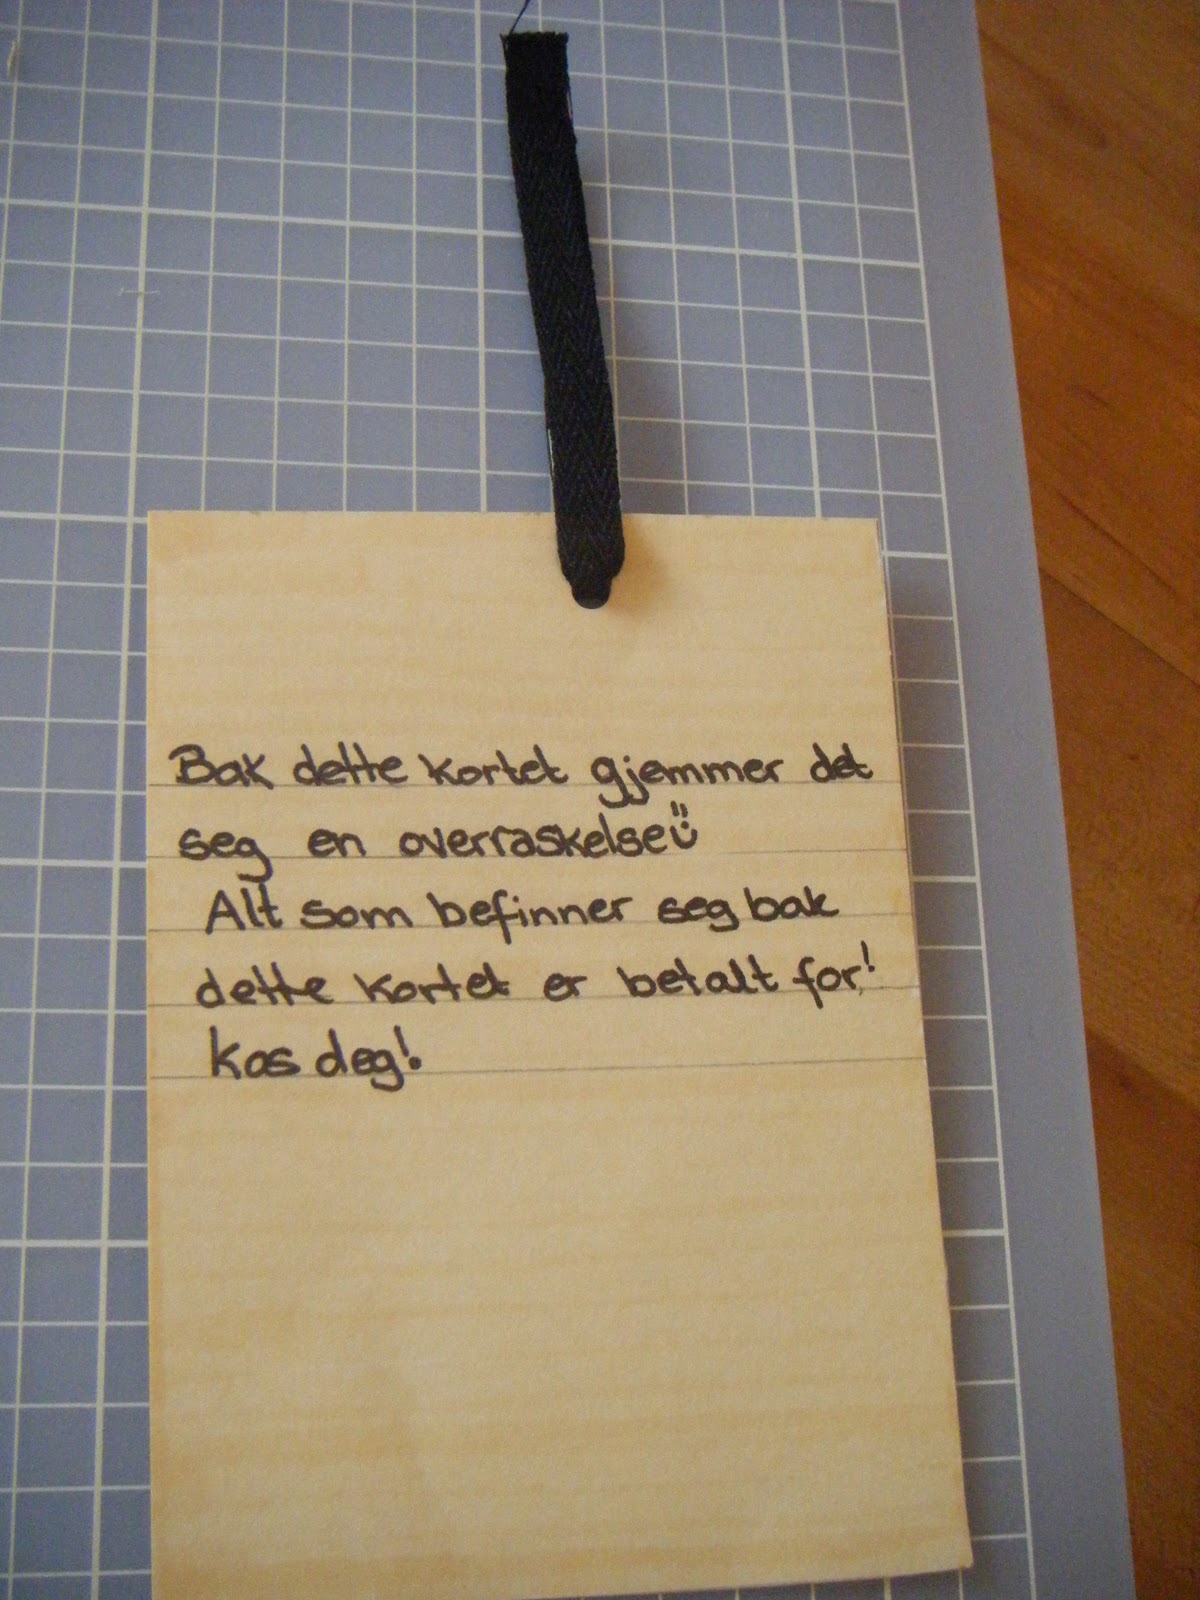 Bak dette kortet gjemmer det
seg en overraskelse
Alt som befinner seg bak
dette kortet er betalt for!
Kos deg!